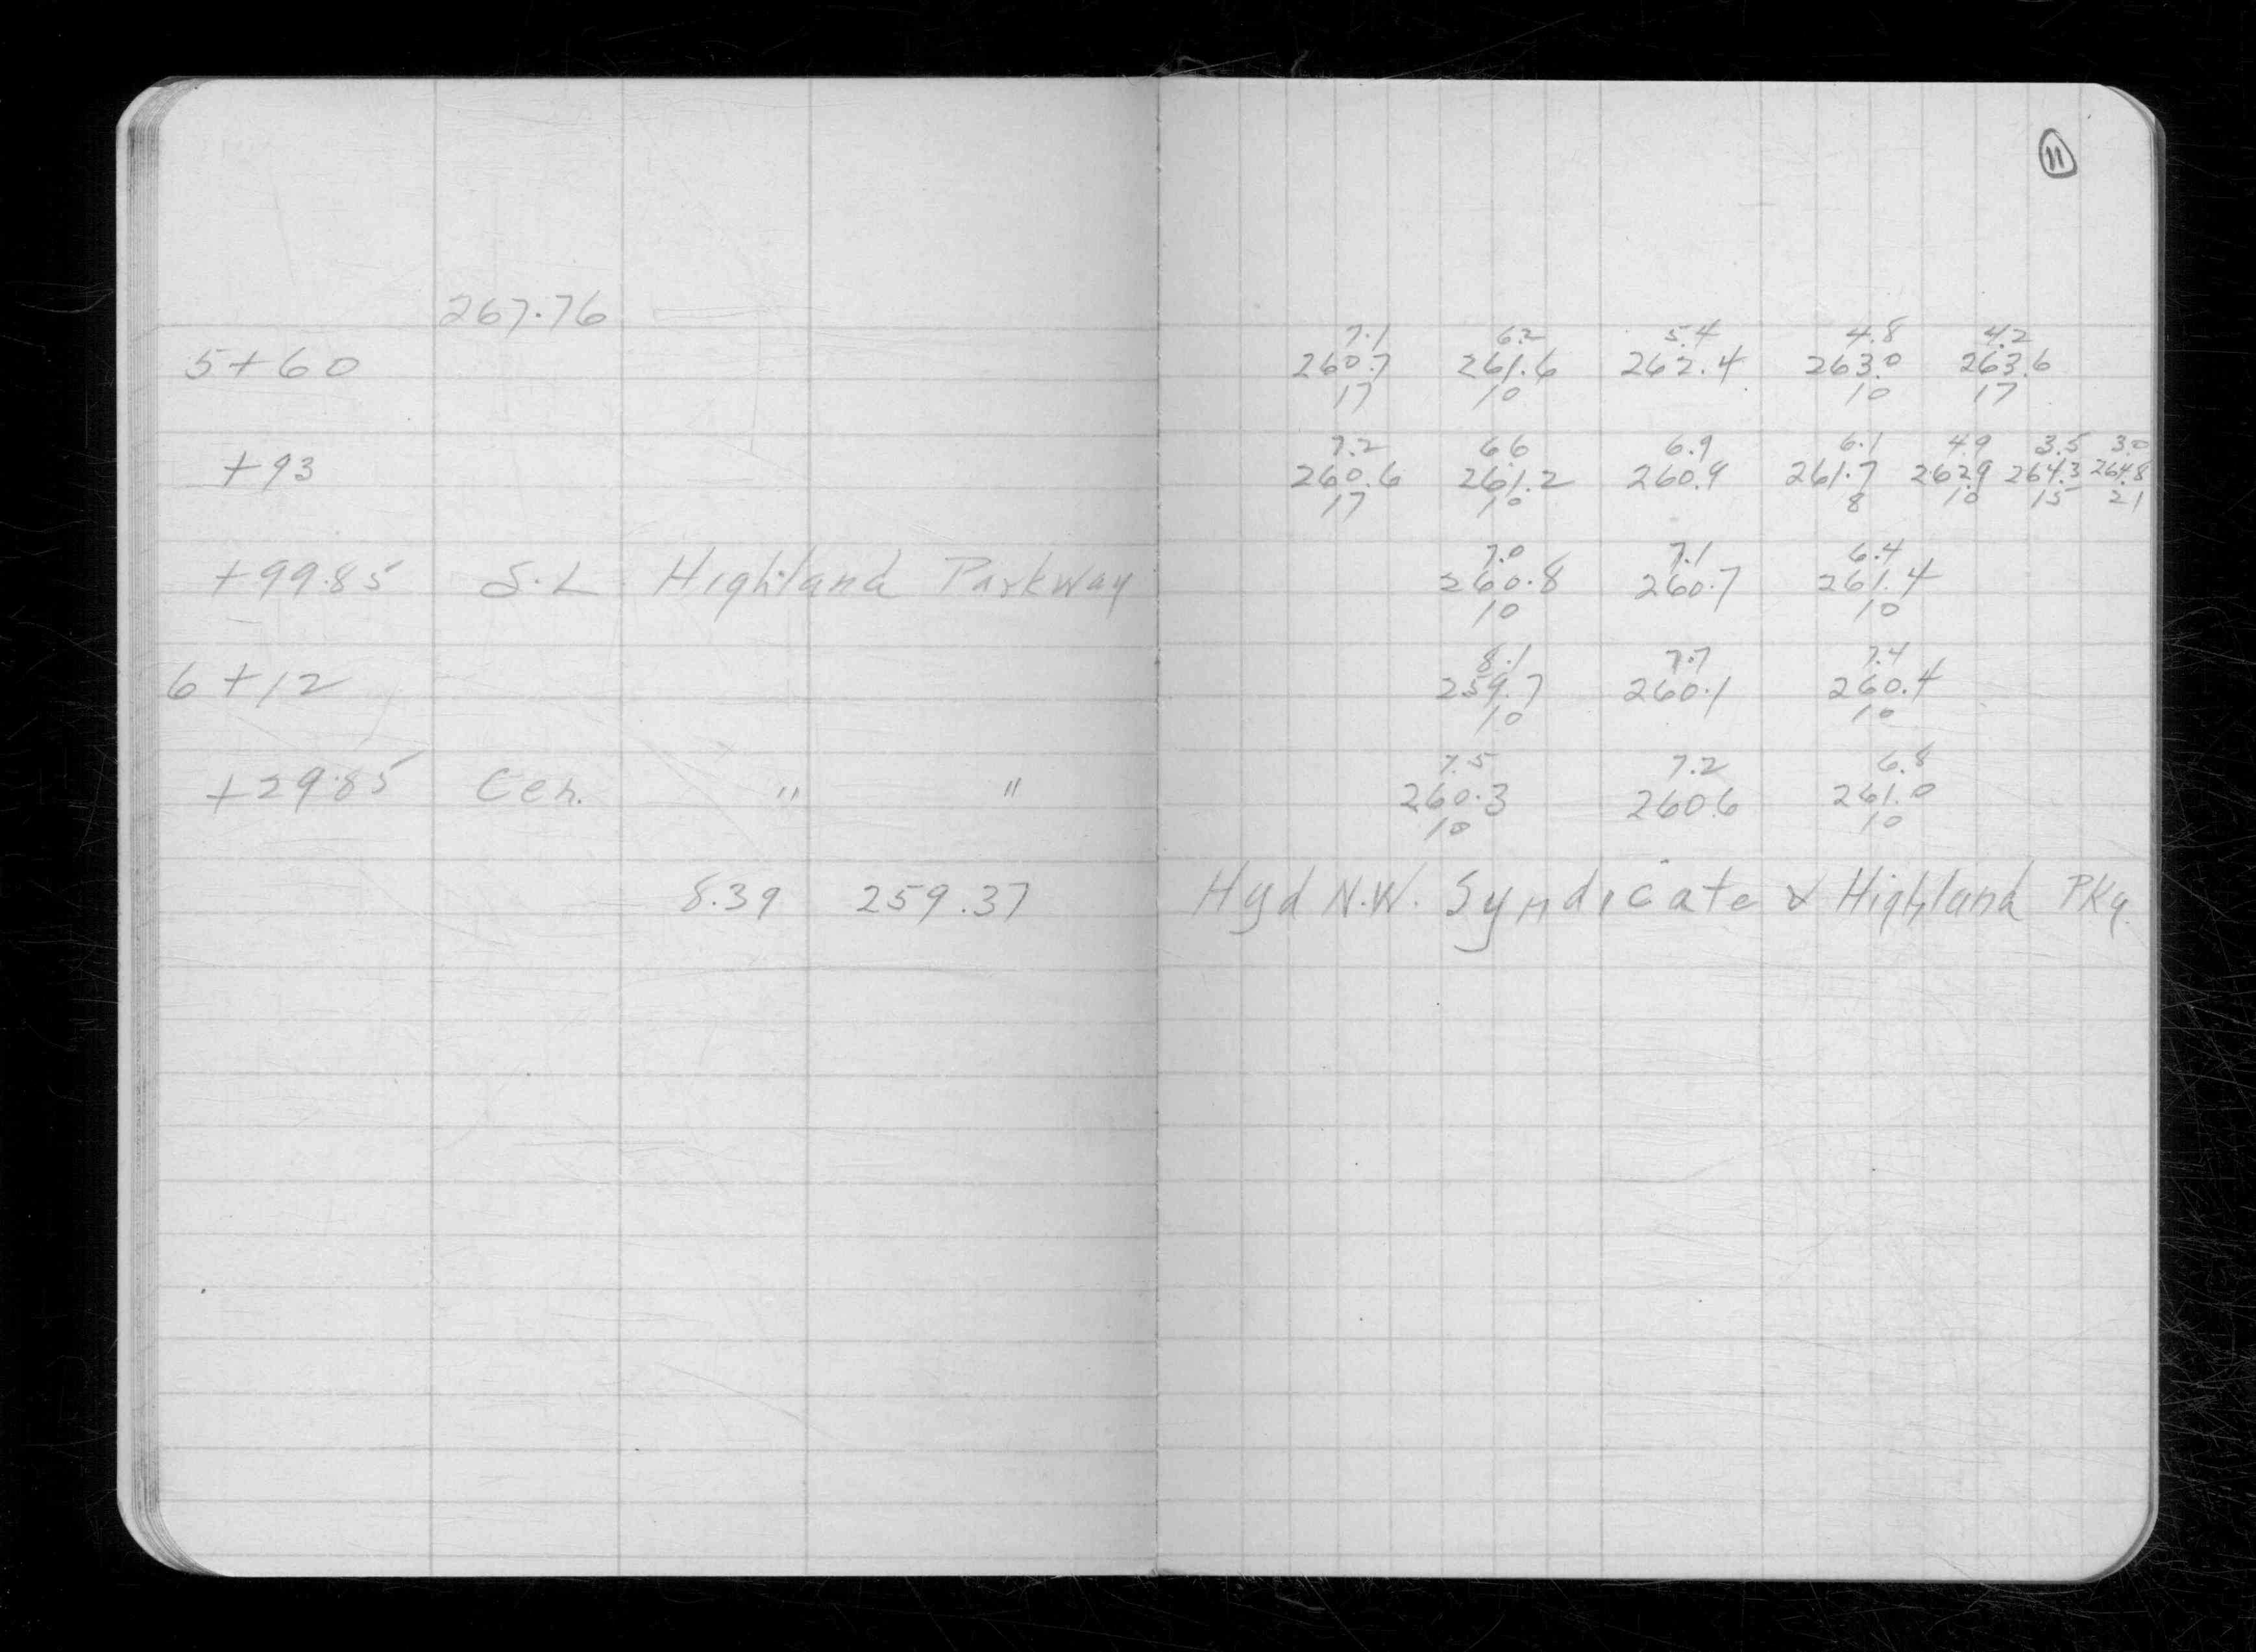 11
267.76
7.1 6.2 5.4 4.8 4.2
5+60 260.7 261.6 262.4 263.0 263.6
17 10 10 17
7.2 6.6 6.9 6.1 4.9 3.5 3.0
+93 260.6 261.2 260.9 261.7 262.9 264.3 264.8
17 10 8 10 15 21
7.0 7.1 6.4
+99.85 S.L Highland Parkway 260.8 260.7 261.4
10 10
8.1 7.7 7.4
6+12 259.7 260.1 260.4
10 10
7.5 7.2 6.8
+29.85 Cen. " " 260.3 260.6 261.0
10 10
8.39 259.37 Hyd N.W. Syndicate & Highland PKy.